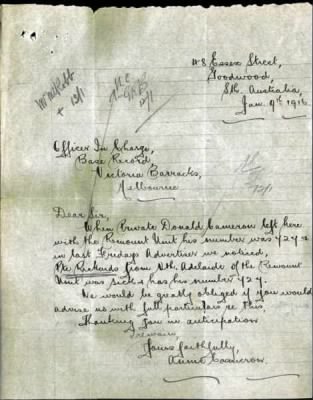 118 Essex Street,
Goodwood,
Sth. Australia,
Jan. 9th 1916
12/1
12/1
12/1
Officer In Charge,
Base Record,
Victoria Barracks,
Melbourne
Dear Sir,
When Private Donald Cameron left here
with the Remount Unit his number was 424 &
in last Fridays Advertiser we noticed,
Pte Rickards from Nth. Adelaide of the Remount
Unit was sick & has his number 424.
We would be greatly obliged if you would
advise us with full particulars re this
Thanking you in anticipation
I remain
Yours faithfully,
Annie Cameron